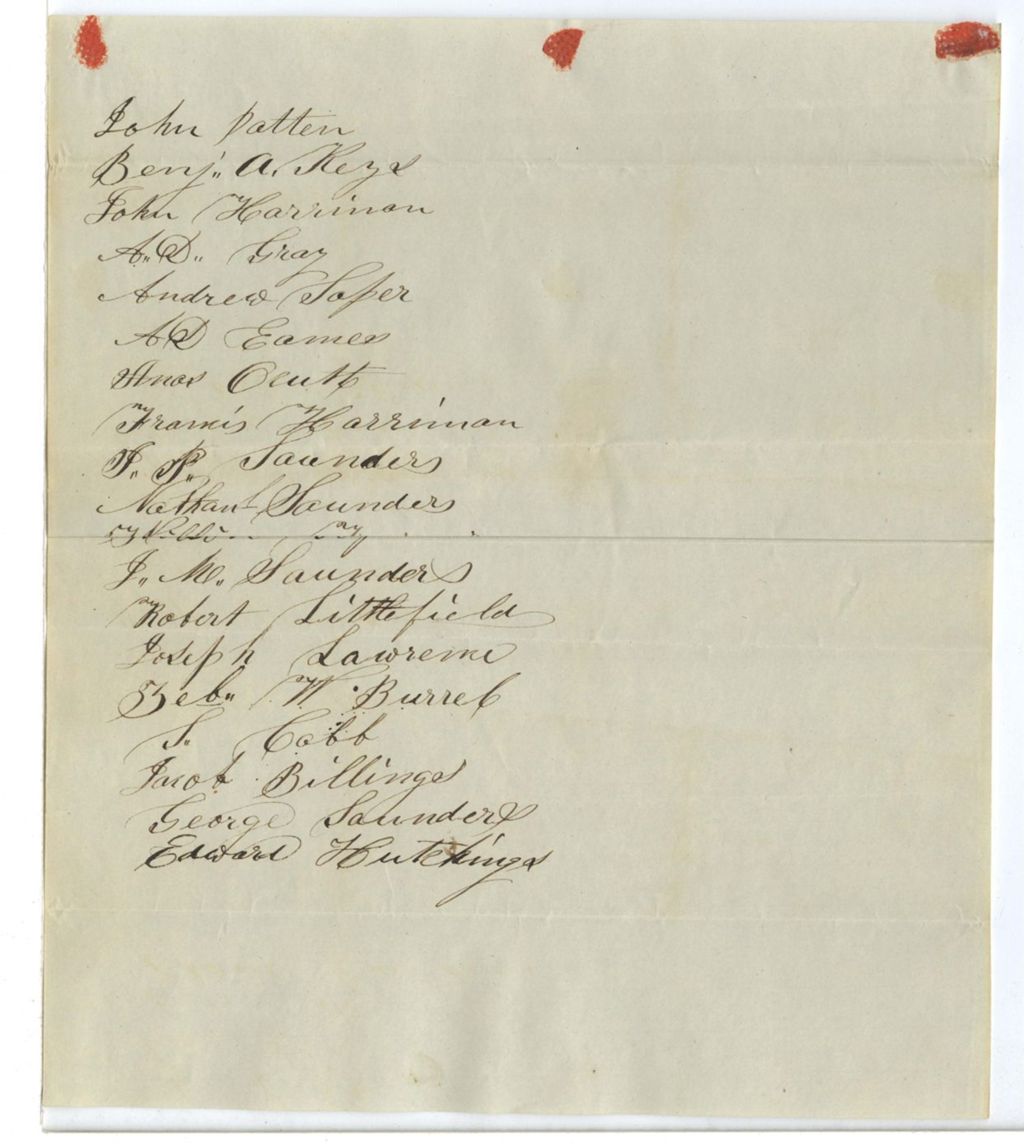 John Patten
Benj. A. Keys
John Harriman
A. D. Gray
Andrew Soper
A D Eames
Francis Harriman
Saunders
Nathan Saunders
J. M. Saunders
Robert Littlefield
Joseph Lawrence
Zeb. W. Burrel
S. Cobb
Jacob Billings
George Saunders
Edward Hutchings